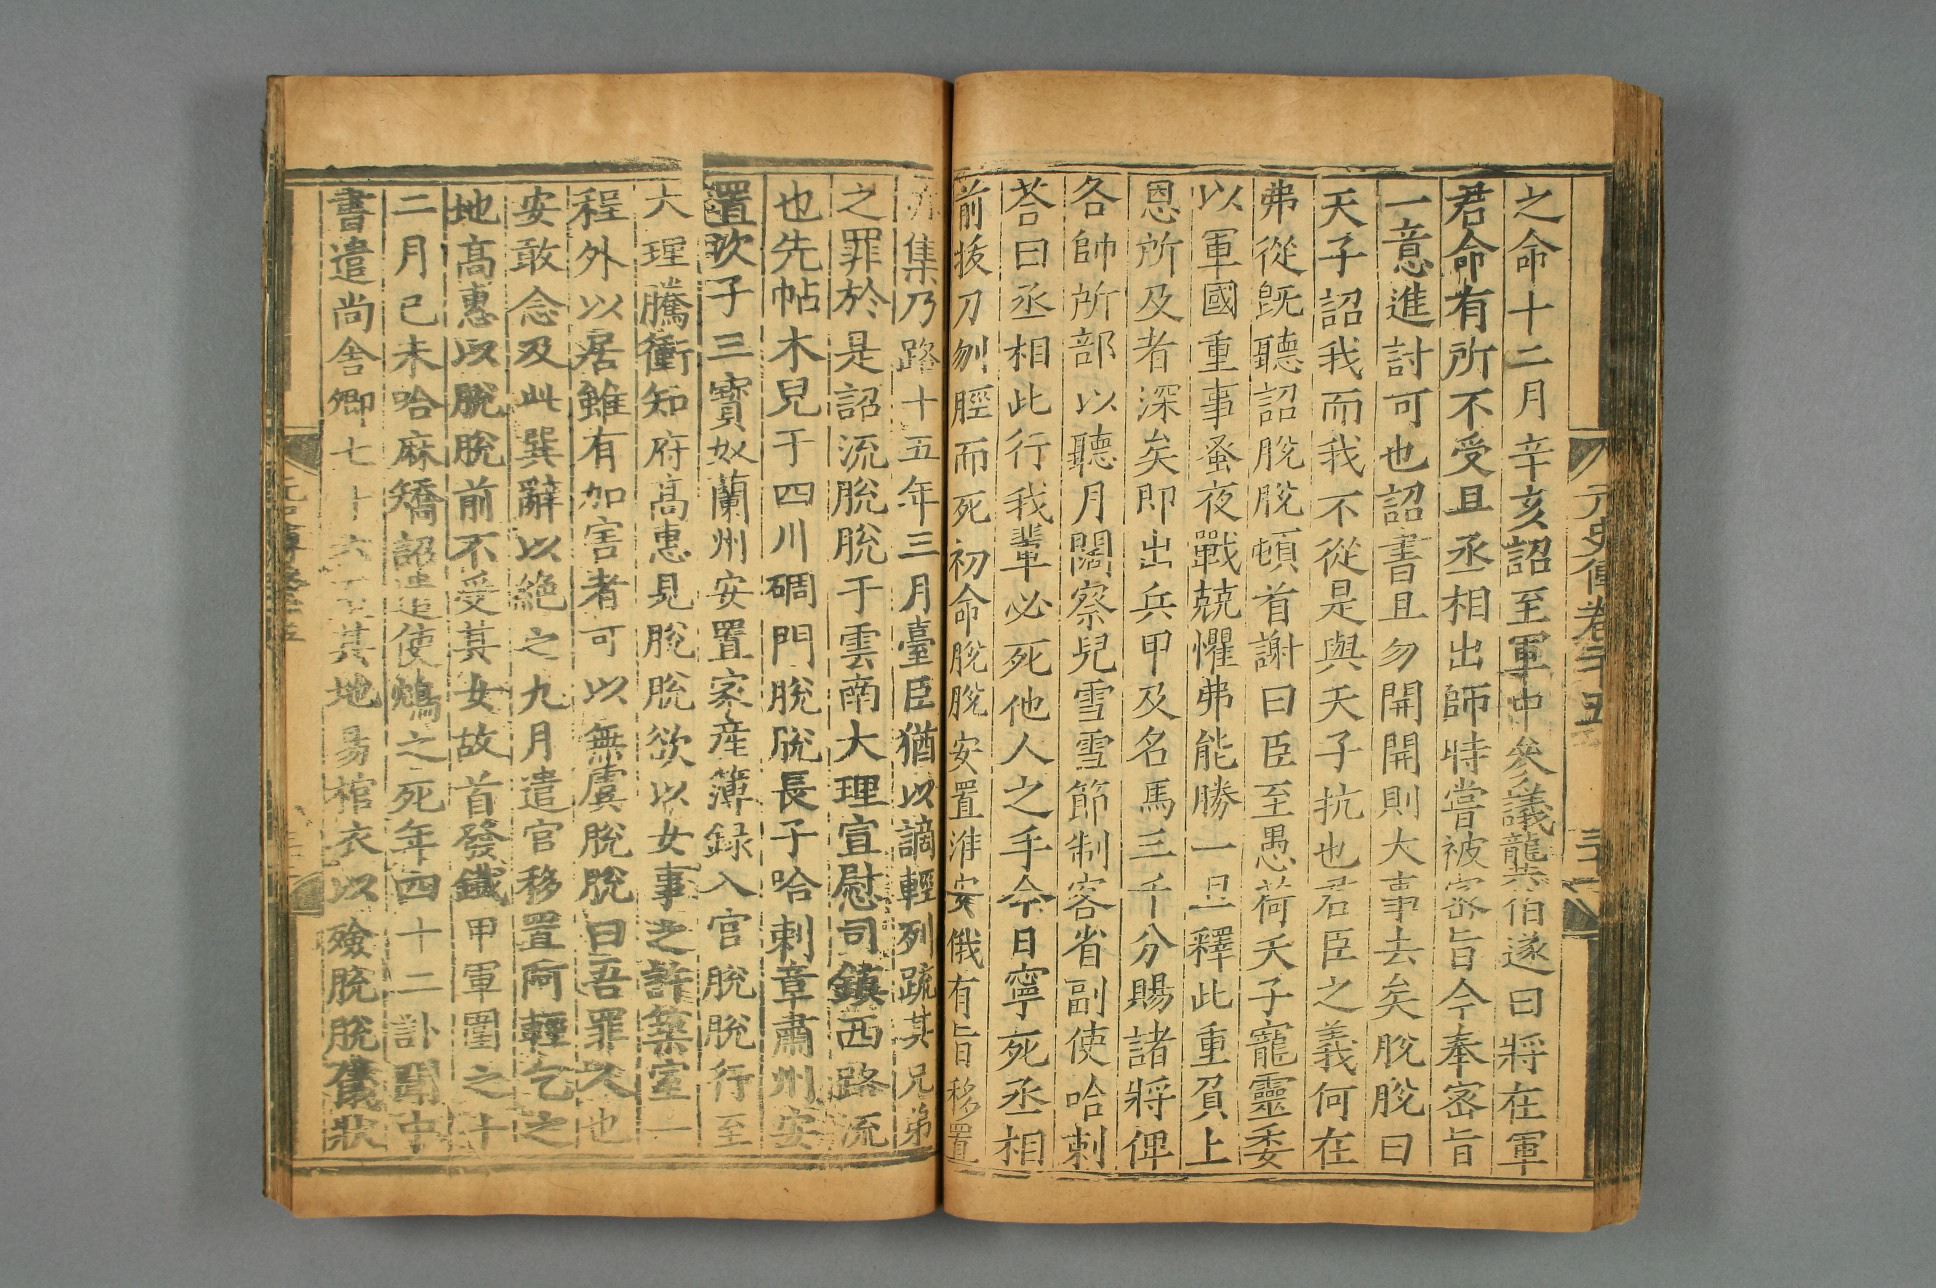 元史傳卷二十五
之命十二月辛亥詔至軍中參議龔伯遂曰將在軍
君命有所不受且丞相出師時嘗被密旨今奉密旨
一意進討可也詔書且勿開開則大事去矣脫脫曰
天子詔我而我不從是與天子抗也君臣之義何在
弗從旣聽詔脫脫頓首謝曰臣至愚荷天子寵靈委
以軍國重事蚤夜戰兢懼弗能勝一旦釋此重負上
恩所及者深矣即出兵甲及名馬三千分賜諸將俾
各帥所部以聽月闊察兒雪雪節制客省副使哈剌
荅曰丞相此行我輩必死他人之手今日寧死丞相
前拔刀刎脛而死初命脫脫安置淮安俄有旨移置
集乃路十五年三月臺臣猶以謫輕列疏其兄弟
之罪於是詔流脫脫于雲南大理宣慰司鎮西路流
也先帖木兒于四川碉門脫脫長子哈剌章肅州安
置次子三寶奴蘭州安置家產簿錄入官脫脫行至
大理騰衝知府高惠見脫脫欲以女事之許築室一
程外以居雖有加害者可以無虞脫脫曰吾罪人也
安敢念及此巽辭以絕之九月遣官移置阿輕乞之
地高惠以脫脫前不受其女故首發鐵甲軍圍之十
二月己未哈麻矯詔遣使鴆之死年四十二訃聞中
書遣尚舍卿七十六至其地易棺衣以殮脫脫儀狀